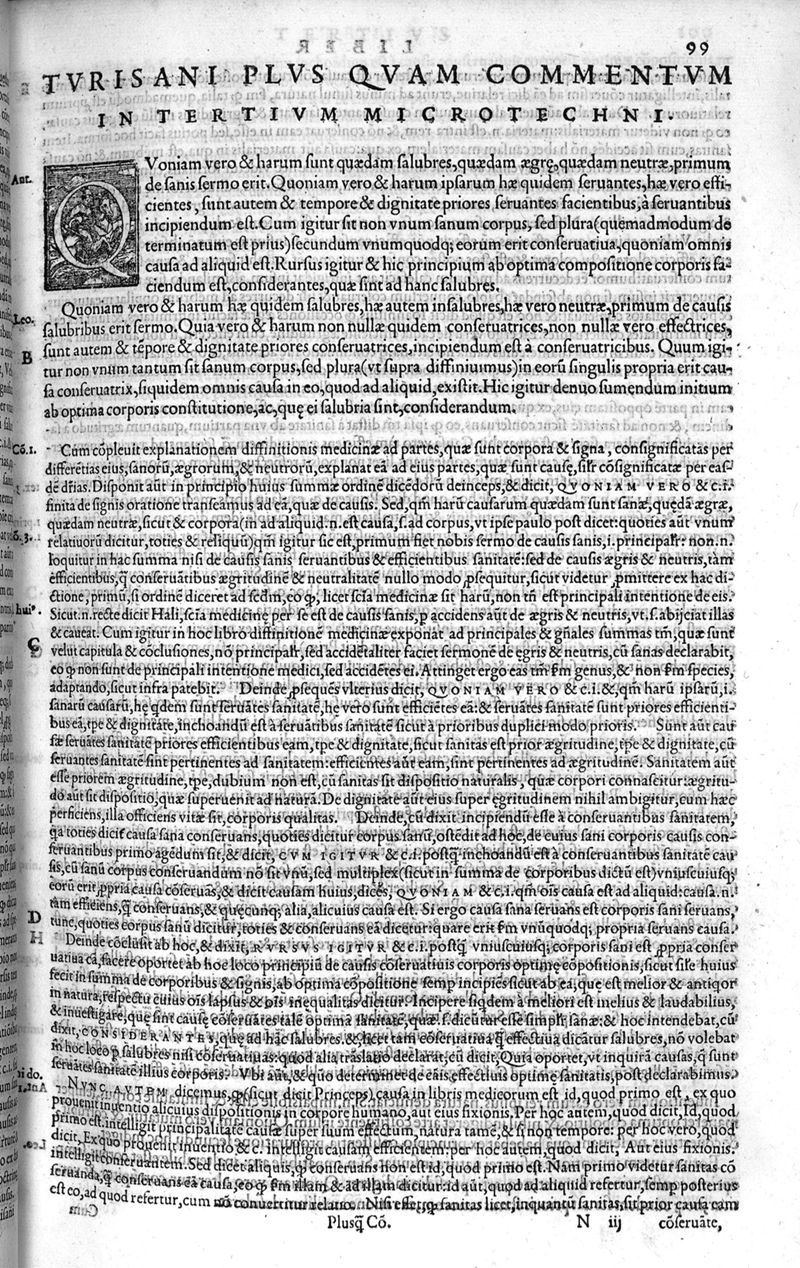 99
TVRISANI PLVS QVAM COMMENTVM
IN TERTIVM MICROTECHNI.
Ant.
QVoniam vero & harum sunt quædam salubres, quædam ægrę, quædam neutræ, primum
de sanis sermo erit. Quoniam vero & harum ipsarum hæ quidem seruantes, hæ vero effi-
cientes, sunt autem & tempore & dignitate priores seruantes facientibus, à seruantibus
incipiendum est. Cum igitur sit non vnum sanum corpus, sed plura (quemadmodum de
terminatum est prius) secundum vnumquodq; eorum erit conseruatiua, quoniam omnis
causa ad aliquid est. Rursus igitur & hic principium ab optima compositione corporis fa-
ciendum est, considerantes, quæ sint ad hanc salubres.
Leo.
Quoniam vero & harum hæ quidem salubres, hæ autem insalubres, hæ vero neutræ, primum de causis
salubribus erit sermo. Quia vero & harum non nullæ quidem conseruatrices, non nullæ vero effectrices,
B
sunt autem & tẽpore & dignitate priores conseruatrices, incipiendum est à conseruatricibus. Quum igi-
tur non vnum tantum sit sanum corpus, sed plura (vt supra diffiniuimus) in eorũ singulis propria erit cau-
sa conseruatrix, siquidem omnis causa in eo, quod ad aliquid, existit. Hic igitur denuo sumendum initium
ab optima corporis constitutione, ac, quę ei salubria sint, considerandum.
Cõ.1.
Cum cõpleuit explanationem diffinitionis medicinæ ad partes, quæ sunt corpora & signa, consignificatas per
differẽtias eius, sanorũ, ægrorum, & neutrorũ, explanat eã ad eius partes, quæ sunt causę, silr cõsignificatæ per eas-
dẽ dr̃ias. Disponit aũt in principio huius summæ ordinẽ dicẽdorũ deinceps, & dicit, QVONIAM VERO & c.i.
finita de signis oratione transeamus ad eã, quæ de causis. Sed, qm̃ harũ causarum quædam sunt sanæ, quędã ægræ,
quædam neutræ, sicut & corpora (in ad aliquid .n. est causa, s. ad corpus, vt ipse paulo post dicet: quoties aũt vnum
relatiuorũ dicitur, toties & reliquũ) qm̃ igitur sic est, primum fiet nobis sermo de causis sanis, i. principalr̃: non .n.
loquitur in hac summa nisi de causis sanis seruantibus & efficientibus sanitatẽ: sed de causis ægris & neutris, tàm
efficientibus, q̃ conseruãtibus ægritudinẽ & neutralitatẽ nullo modo ꝓsequitur, sicut videtur ꝓmittere ex hac di-
ctione, primũ, si ordinẽ diceret ad scd̃m, eo ꝙ, licet scĩa medicinæ sit harũ, non tñ est principali intentione de eis.
hui⁹.
Sicut .n. recte dicit Hali, scĩa medicinę per se est de causis sanis, p accidens aũt de ægris & neutris, vt .s. abijciat illas
& caueat. Cum igitur in hoc libro diffinitionẽ medicinæ exponat ad principales & gñales summas tm̃, quæ sunt
C
velut capitula & cõclusiones, nõ principalr̃, sed accidẽtaliter faciet sermonẽ de ęgris & neutris, cũ sanas declarabit,
eo ꝙ non sunt de principali intentione medici, sed accidẽtes ei. Attinget ergo eas tm̃ f̃m genus, & non f̃m species,
adaptando, sicut infra patebit. Deinde ꝓsequẽs vlterius dicit, QVONIAM VERO & c.i. &, qm̃ harũ ipsarũ, i.
sanarũ causarũ, hę qdem sunt seruãtes sanitatẽ, hę vero sunt efficiẽtes eã: & seruãtes sanitatẽ sunt priores efficienti-
bus eã, tp̃e & dignitate, inchoandũ est à seruãtibus sanitatẽ sicut à prioribus duplici modo prioris. Sunt aũt cau-
sæ seruãtes sanitatẽ priores efficientibus eam, tp̃e & dignitate, sicut sanitas est prior ægritudine, tp̃e & dignitate, cũ
seruantes sanitatẽ sint pertinentes ad sanitatem: efficientes aũt eam, sint pertinentes ad ægritudinẽ. Sanitatem aũt
esse priorem ægritudine, tp̃e, dubium non est, cũ sanitas sit dispositio naturalis, quæ corpori connascitur: ægritu-
do aũt sit dispositio, quæ superuenit ad naturã. De dignitate aũt eius super ęgritudinem nihil ambigitur, cum hæc
perficiens, illa officiens vitæ sit, corporis qualitas. Deinde, cũ dixit incipiendũ esse à conseruantibus sanitatem,
q̃a toties dicit̃ causa sana conseruans, quoties dicitur corpus sanũ, ostẽdit ad hoc, de cuius sani corporis causis con-
seruantibus primo agẽdum sit, & dicit, CVM IGITVR & c.i. postq̃ inchoandũ est à conseruantibus sanitatẽ cau
sis, cũ sanũ corpus conseruandum nõ sit vnũ, sed multiplex (sicut in summa de corporibus dictũ est) vniuscuiusq;
eorũ erit ꝓpria causa cõseruãs, & dicit causam huius, dicẽs, QVONIAM & c.i. qm̃ oĩs causa est ad aliquid: causa .n.
D
tam efficiens, q̃ conseruans, & quęcunq; alia, alicuius causa est. Si ergo causa sana seruans est corporis sani seruans,
tunc, quoties corpus sanũ dicitur, toties & conseruans eã dicetur: quare erit f̃m vnũquodq; propria seruans causa.
Deinde cõclusit ab hoc, & dixit, RVRSVS IGITVR & c.i. postq̃ vniuscuiusq; corporis sani est ꝓpria conser
uatiua cã, facere oportet ab hoc loco principiũ de causis cõseruatiuis corporis optimę cõpositionis, sicut silr̃e huius
fecit in summa de corporibus & signis, ab optima cõpositione semp incipiẽs sicut ab ea, que est melior & antiqor
in natura, respectu cuius oĩs lapsus & oĩs inęqualitas dicitur. Incipere siqdem à meliori est melius & laudabilius,
& inuestigare, quę sint causę cõseruãtes talẽ optimã sanitatẽ, quæ .s. dicitur esse simplr̃ sanæ: & hoc intendebat, cũ
dixit, CONSIDERANTES, quę ad hãc salubres. &, licet tam cõseruatiua q̃ effectiua dicãtur salubres, nõ volebat
in hoc loco p salubres nisi cõseruatiuas: quod alia traslatio declarat, cũ dicit, Quia oportet, vt inquirã causas, q̃ sunt
seruãtes sanitatẽ illius corporis. Vbi aũt, & quo determinet de cãis effectiuis optimę sanitatis, post declarabimus.
NVNC AVTEM dicemus, ꝙ (sicut dicit Princeps) causa in libris medicorum est id, quod primo est, ex quo
prouenit inuentio alicuius dispositionis in corpore humano, aut eius fixionis. Per hoc autem, quod dicit, Id, quod
primo est, intelligit principalitatẽ causæ super suum effectum, natura tamẽ, & si non tempore: per hoc vero, quod
dicit, Ex quo prouenit inuentio & c. intelligit causam efficientem: per hoc autem, quod dicit, Aut eius fixionis.
intelligit conseruantem. Sed dicet aliquis, ꝙ conseruans non est id, quod primo est. Nam primo videtur sanitas cõ
seruanda, q̃ conseruans eã causa, eo ꝙ f̃m illam & ad illam dicitur: id aũt, quod ad aliquid refertur, semp posterius
est eo, ad quod refertur, cum non conuertitur relatio. Nisi esset, ꝙ sanitas licet, inquantũ sanitas, sit prior causa eam
Plusq̃ Cõ. N iij cõseruãte,